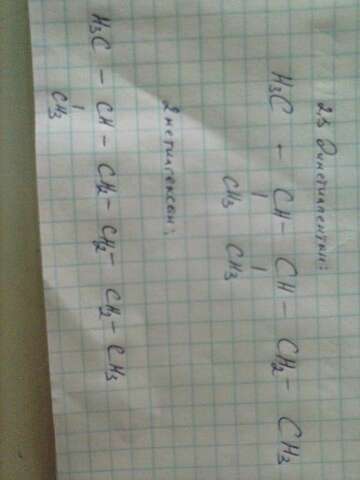 2,3 Диметилпентан:
H₃C - CH - CH - CH₂ - CH₃
CH₃ CH₃
2 метилгексан:
H₃C - CH - CH₂ - CH₂ - CH₂ - CH₃
CH₃